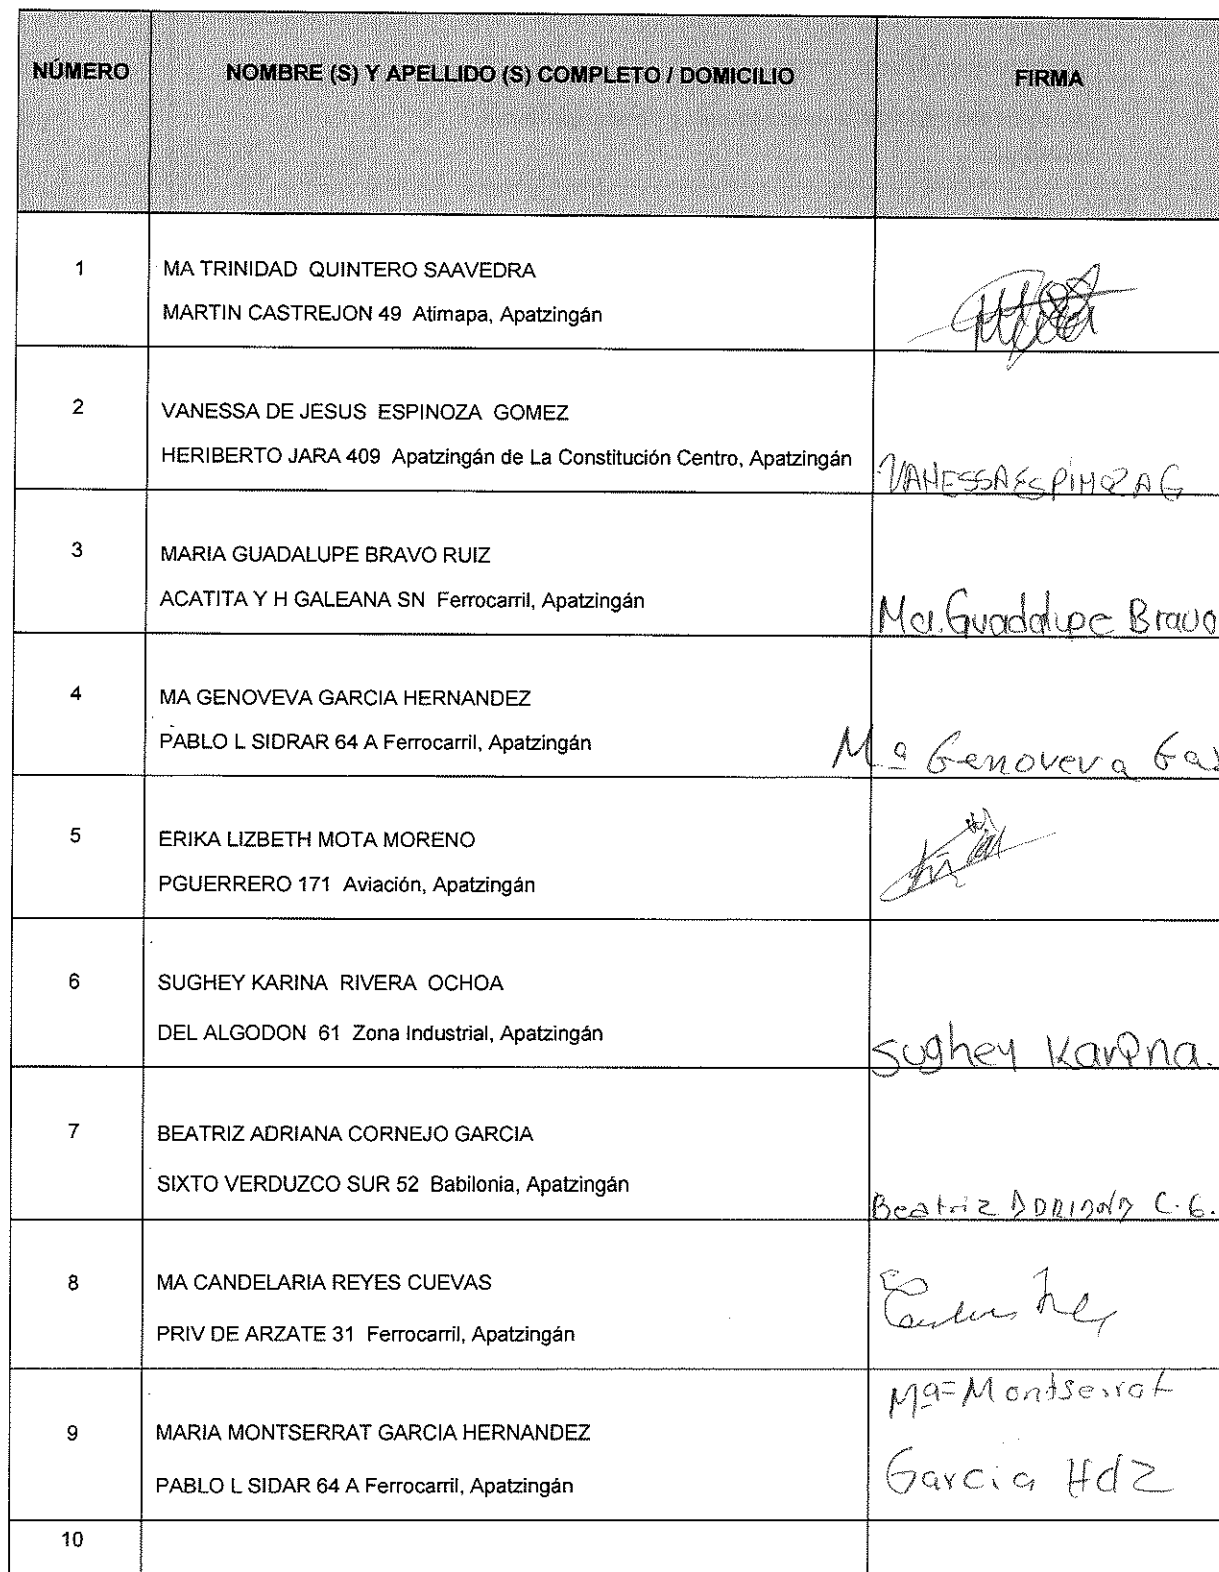 NÚMERO NOMBRE (S) Y APELLIDO (S) COMPLETO / DOMICILIO FIRMA
1 MA TRINIDAD QUINTERO SAAVEDRA
MARTIN CASTREJON 49 Atimapa, Apatzingán
2 VANESSA DE JESUS ESPINOZA GOMEZ
HERIBERTO JARA 409 Apatzingán de La Constitución Centro, Apatzingán VANESSA ESPINOZA G
3 MARIA GUADALUPE BRAVO RUIZ
ACATITA Y H GALEANA SN Ferrocarril, Apatzingán Ma. Guadalupe Bravo
4 MA GENOVEVA GARCIA HERNANDEZ
PABLO L SIDRAR 64 A Ferrocarril, Apatzingán Mª Genoveva Gar
5 ERIKA LIZBETH MOTA MORENO
PGUERRERO 171 Aviación, Apatzingán
6 SUGHEY KARINA RIVERA OCHOA
DEL ALGODON 61 Zona Industrial, Apatzingán Sughey Karina.
7 BEATRIZ ADRIANA CORNEJO GARCIA
SIXTO VERDUZCO SUR 52 Babilonia, Apatzingán Beatriz ADRIANA C.G.
8 MA CANDELARIA REYES CUEVAS
PRIV DE ARZATE 31 Ferrocarril, Apatzingán
Mª Montserrat
9 MARIA MONTSERRAT GARCIA HERNANDEZ
PABLO L SIDAR 64 A Ferrocarril, Apatzingán Garcia Hdz
10